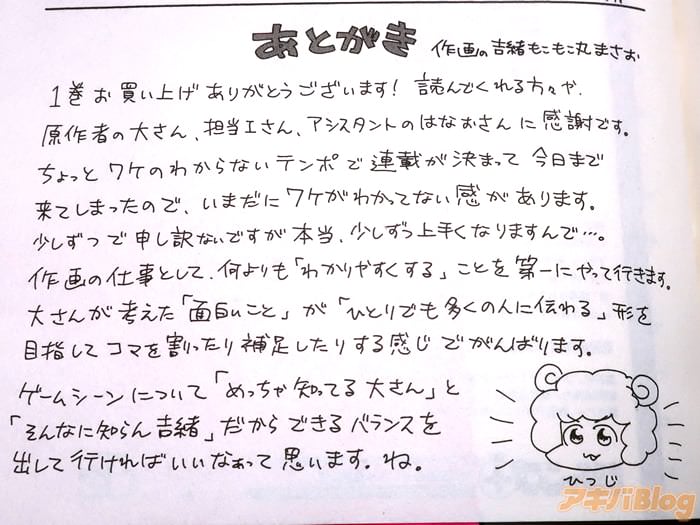 あとがき 作画の吉緒もこもこ丸まさお
1巻お買い上げありがとうございます! 読んでくれる方々や、
原作者の大さん、担当工さん、アシスタントのはなおさんに感謝です。
ちょっとワケのわからないテンポで連載が決まって今日まで
来てしまったので、いまだにワケがわかってない感があります。
少しずつで申し訳ないですが本当、少しずつ上手くなりますんで…。
作画の仕事として、何よりも「わかりやすくする」ことを第一にやって行きます。
大さんが考えた「面白いこと」が「ひとりでも多くの人に伝わる」形を
目指してコマを割ったり補足したりする感じでがんばります。
ゲームシーンについて「めっちゃ知ってる大さん」と
「そんなに知らん吉緒」だからできるバランスを
出して行ければいいなぁって思います。ね。
ひつじ
アキバBlog